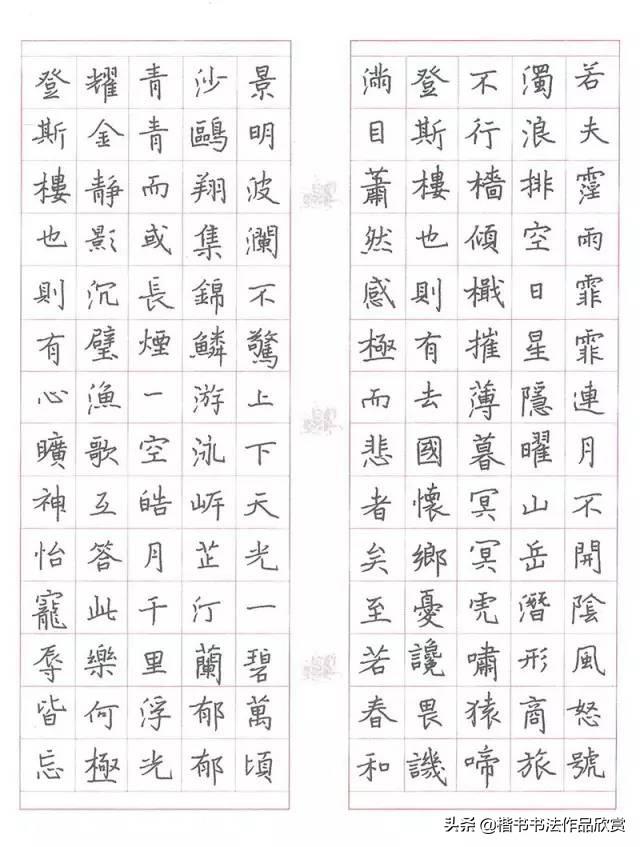 若夫霪雨霏霏連月不開陰風怒號
濁浪排空日星隱曜山岳潛形商旅
不行檣傾檝摧薄暮冥冥虎嘯猿啼
登斯樓也則有去國懷鄉憂讒畏譏
滿目蕭然感極而悲者矣至若春和
景明波瀾不驚上下天光一碧萬頃
沙鷗翔集錦鱗游泳岸芷汀蘭郁郁
青青而或長煙一空皓月千里浮光
耀金靜影沉璧漁歌互答此樂何極
登斯樓也則有心曠神怡寵辱皆忘
头条 @楷书书法作品欣赏